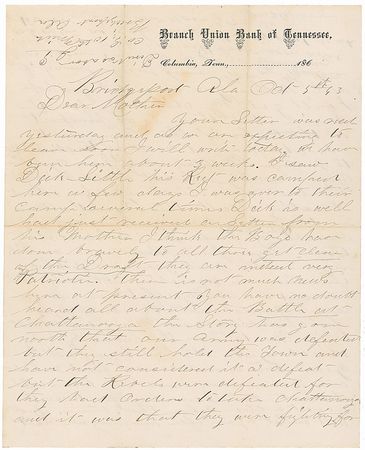 Branch Union Bank of Tennessee,
Columbia, Tenn., 186
Bridgeport Ala Oct 5th 63
Dear Mother
Your Letter was recd
yesterday and as we are expecting to
leave soon I will write today. we have
been here about 2 weeks. I saw
Dick his Regt was camped
here a few days I was over to their
camp several times Dick is well
had just received a Letter from
his Mother I think the Boys have
done to all them get clear
of the Draft they are indeed very
Patriotic. There is not much news
here at present You have no doubt
heard all about the Battle at
Chattanooga the Story has gone
north that our army was defeated
but they still hold the Town and
have not considered it a defeat
but the Rebels were defeated for
they had orders to take Chattanooga
and it was that they were fighting for